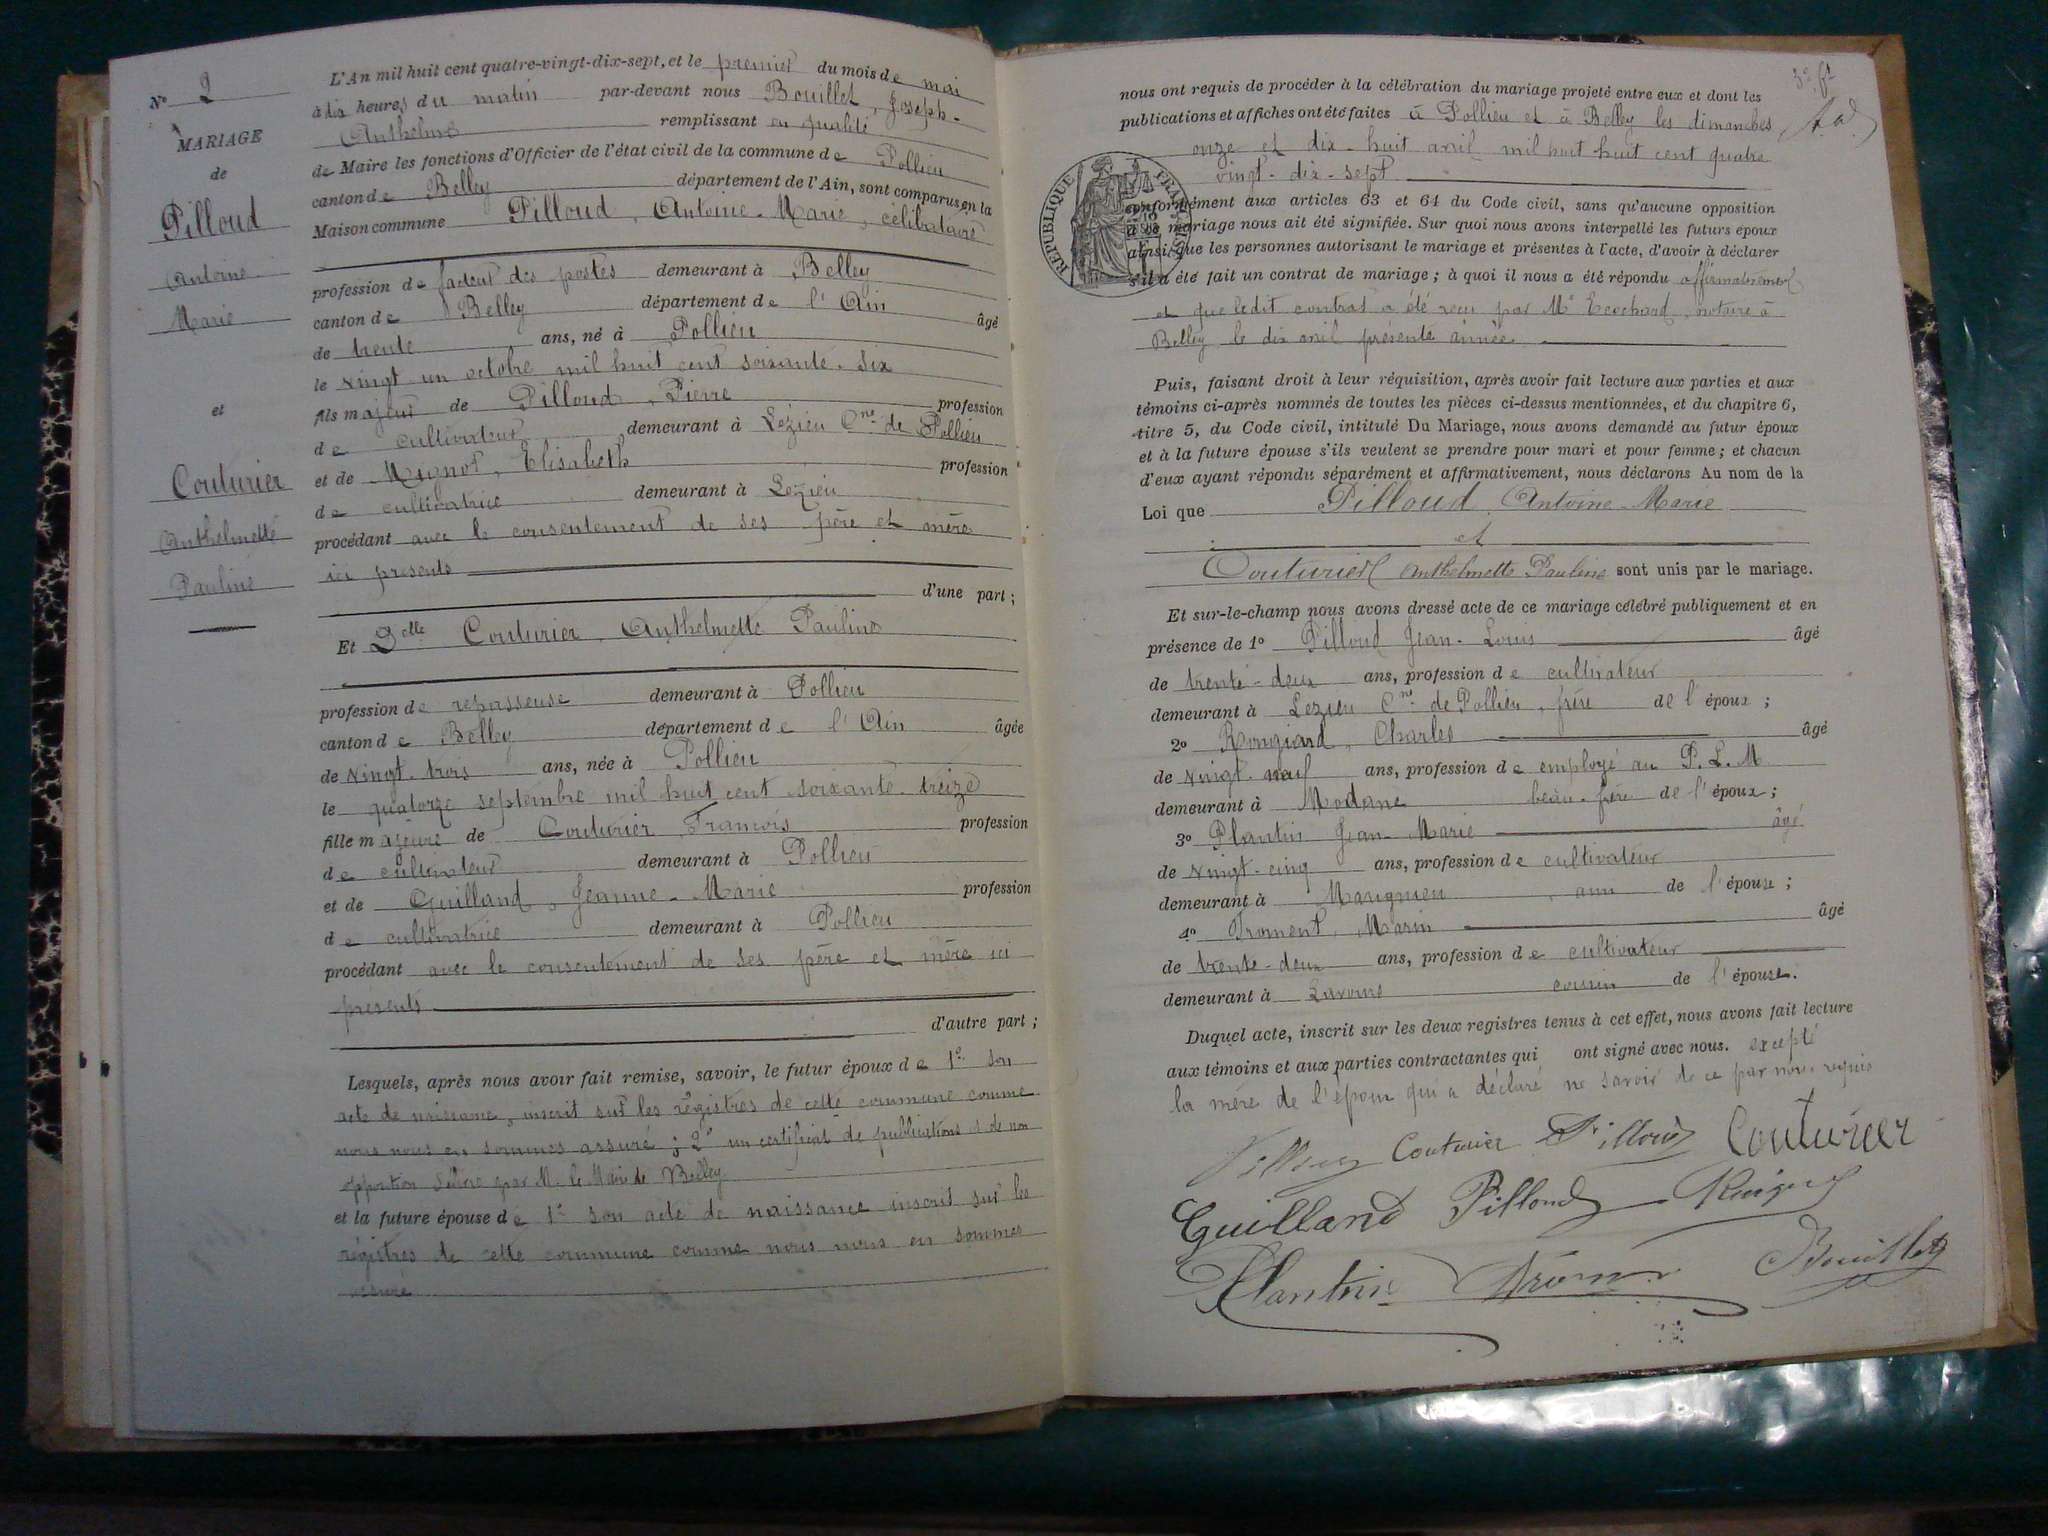 No 2
MARIAGE
de
Pilloud
Antoine
Marie
et
Couturier
Anthelmette
Pauline
L'An mil huit cent quatre-vingt-dix-sept, et le premier du mois de mai
à dix heures du matin par-devant nous Bouillet, Joseph-
Anthelme remplissant en qualité
de Maire les fonctions d'Officier de l'état civil de la commune de Pollieu
canton de Belley département de l'Ain, sont comparus en la
Maison commune Pilloud, Antoine-Marie, célibataire
profession de facteur des postes demeurant à Belley
canton de Belley département de l'Ain âgé
de trente ans, né à Pollieu
le vingt-un octobre mil huit cent soixante-six
fils majeur de Pilloud, Pierre profession
de cultivateur demeurant à Lezieu Cne de Pollieu
et de Mugnot, Elisabeth profession
de cultivatrice demeurant à Lezieu
procédant avec le consentement de ses père et mère
ici présents
d'une part ;
Et Delle Couturier, Anthelmette Pauline
profession de repasseuse demeurant à Pollieu
canton de Belley département de l'Ain âgée
de vingt-trois ans, née à Pollieu
le quatorze septembre mil huit cent soixante-treize
fille majeure de Couturier François profession
de cultivateur demeurant à Pollieu
et de Guilland, Jeanne-Marie profession
de cultivatrice demeurant à Pollieu
procédant avec le consentement de ses père et mère ici
présents
d'autre part ;
Lesquels, après nous avoir fait remise, savoir, le futur époux de 1° son
acte de naissance, inscrit sur les régistres de cette commune comme
nous nous en sommes assuré ; 2° un certificat de publications et de non
opposition délivré par M. le Maire de Belley
et la future épouse de 1° son acte de naissance inscrit sur les
régistres de cette commune comme nous nous en sommes
assuré
nous ont requis de procéder à la célébration du mariage projeté entre eux et dont les
publications et affiches ont été faites à Pollieu et à Belley les dimanches
onze et dix-huit avril mil huit huit cent quatre
vingt-dix-sept
RÉPUBLIQUE FRANÇAISE
conformément aux articles 63 et 64 du Code civil, sans qu'aucune opposition
à ce mariage nous ait été signifiée. Sur quoi nous avons interpellé les futurs époux
ainsi que les personnes autorisant le mariage et présentes à l'acte, d'avoir à déclarer
s'il a été fait un contrat de mariage ; à quoi il nous a été répondu affirmativement
et que ledit contrat a été reçu par Me Ecochard, notaire à
Belley le dix avril présente année
Puis, faisant droit à leur réquisition, après avoir fait lecture aux parties et aux
témoins ci-après nommés de toutes les pièces ci-dessus mentionnées, et du chapitre 6,
titre 5, du Code civil, intitulé Du Mariage, nous avons demandé au futur époux
et à la future épouse s'ils veulent se prendre pour mari et pour femme ; et chacun
d'eux ayant répondu séparément et affirmativement, nous déclarons Au nom de la
Loi que Pilloud Antoine-Marie
et
Couturier Anthelmette Pauline sont unis par le mariage.
Et sur-le-champ nous avons dressé acte de ce mariage célébré publiquement et en
présence de 1o Pilloud Jean-Louis âgé
de trente-deux ans, profession de cultivateur
demeurant à Lezieu Cne de Pollieu, frère de l'époux ;
2o Charles âgé
de vingt-neuf ans, profession de employé au P.L.M
demeurant à Modane beau-frère de l'époux ;
3o Plantin Jean-Marie âgé
de vingt-cinq ans, profession de cultivateur
demeurant à Marignieu ami de l'épouse ;
4o Froment, Marin âgé
de trente-deux ans, profession de cultivateur
demeurant à Lavours cousin de l'épouse.
Duquel acte, inscrit sur les deux registres tenus à cet effet, nous avons fait lecture
aux témoins et aux parties contractantes qui ont signé avec nous. excepté
la mère de l'époux qui a déclaré ne savoir de ce par nous requis
Pilloud Couturier Pilloud Couturier
Guilland Pilloud
Plantin Froment Bouillet